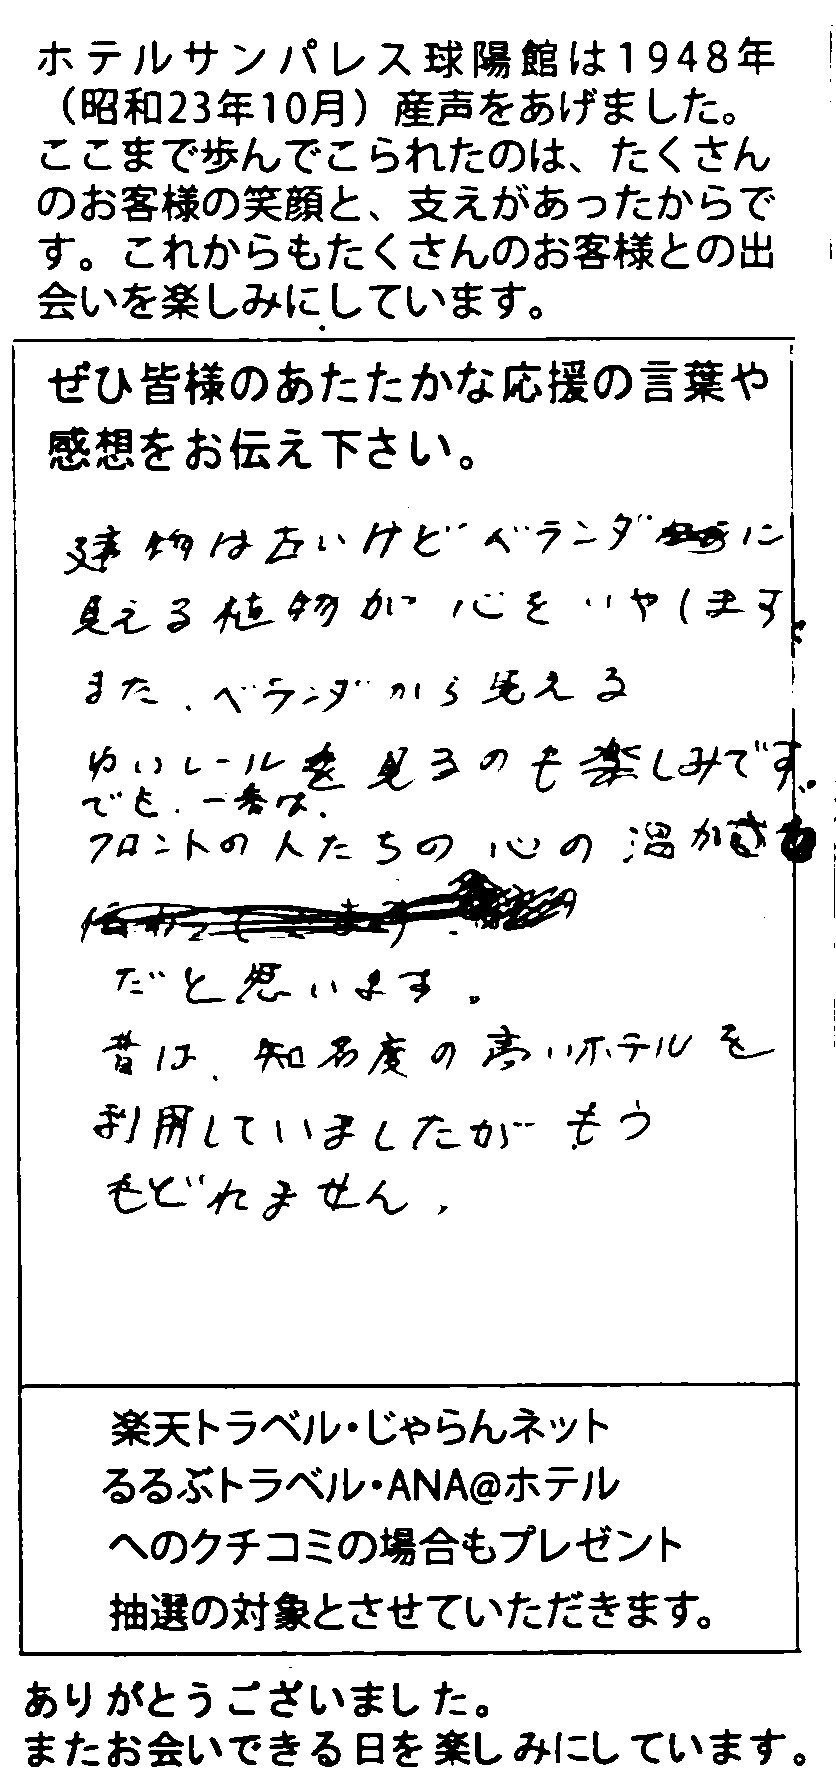 ホテルサンパレス球陽館は1948年
（昭和23年10月）産声をあげました。
ここまで歩んでこられたのは、たくさん
のお客様の笑顔と、支えがあったからで
す。これからもたくさんのお客様との出
会いを楽しみにしています。
ぜひ皆様のあたたかな応援の言葉や
感想をお伝え下さい。
建物は古いけどベランダに
見える植物が心をいやします。
また、ベランダから見える
ゆいレールを見るのも楽しみです。
でも、一番は、
フロントの人たちの心の温かさ
だと思います。
昔は、知名度の高いホテルを
利用していましたがもう
もどれません。
楽天トラベル・じゃらんネット
るるぶトラベル・ANA@ホテル
へのクチコミの場合もプレゼント
抽選の対象とさせていただきます。
ありがとうございました。
またお会いできる日を楽しみにしています。